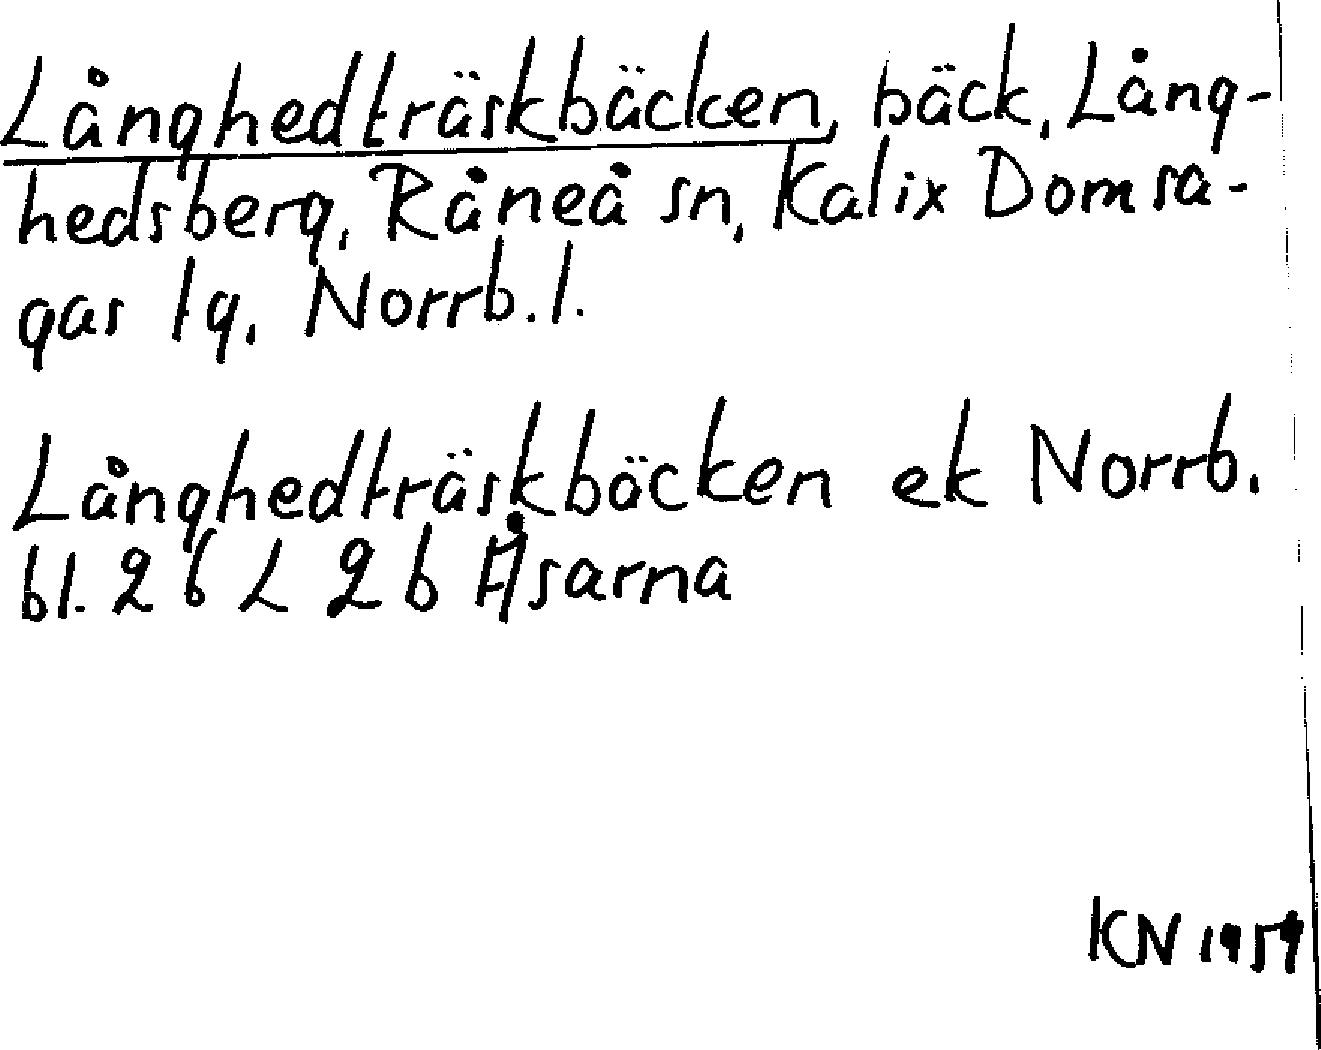 Långhedträskbäcken, bäck, Lång-
hedsberg, Råneå sn, Kalix Domsa-
gas lg, Norrb. l.
Långhedträskbäcken ek Norrb.
bl. 26 L 2b Åsarna
KN 1959